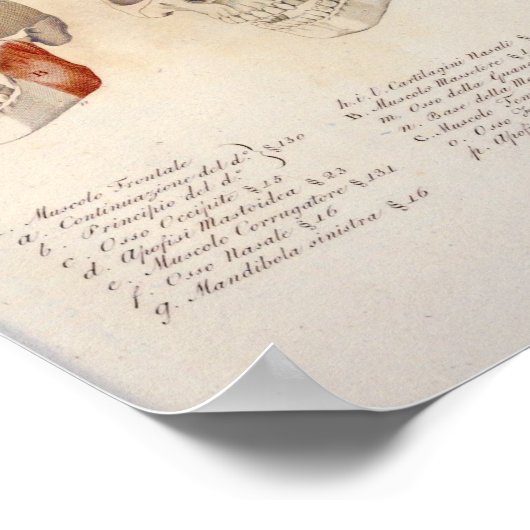 Muscolo Frontale
a. Continuazione del d.º } § 130
b. Principio del d.º
c. Osso Occipite § 15
d. Apofisi Mastoidea § 23
e. Muscolo Corrugatore § 131
f. Osso Nasale § 16
g. Mandibola sinistra § 16
h. i. l. Cartilagini Nasali
B. Muscolo Massetere §
m. Osso della
n. Base della
C. Muscolo
o. Osso
p.